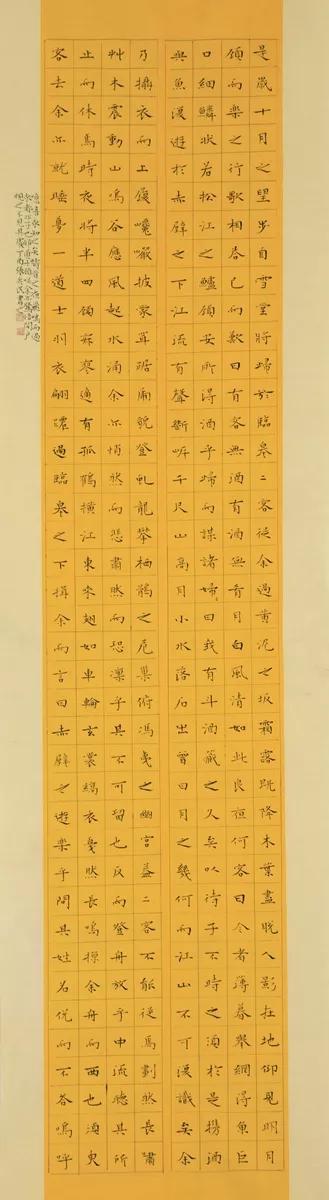 是歲十月之望步自雪堂將歸於臨皋二客從余過黃泥之坂霜露既降木葉盡脫人影在地仰見明月
顧而樂之行歌相答已而歎曰有客無酒有酒無肴月白風清如此良夜何客曰今者薄暮舉網得魚巨
口細鱗狀若松江之鱸顧安所得酒乎歸而謀諸婦曰我有斗酒藏之久矣以待子不時之須於是携酒
與魚復遊於赤壁之下江流有聲斷岸千尺山高月小水落石出曾日月之幾何而江山不可復識矣余
乃攝衣而上履巉巖披蒙茸踞虎豹登虬龍攀栖鶻之危巢俯馮夷之幽宮蓋二客不能從焉劃然長嘯
艸木震動山鳴谷應風起水涌余亦悄然而悲肅然而恐凜乎其不可留也反而登舟放乎中流聽其所
止而休焉時夜將半四顧寂寥適有孤鶴橫江東來翅如車輪玄裳縞衣戛然長鳴掠余舟而西也須臾
客去余亦就睡夢一道士羽衣翩躚過臨皋之下揖余而言曰赤壁之遊樂乎問其姓名俛而不答嗚呼
噫嘻我知之矣疇昔之夜飛鳴而過
我者非子也耶道士顧笑余亦驚寤開戶
視之不見其處丁酉張民書